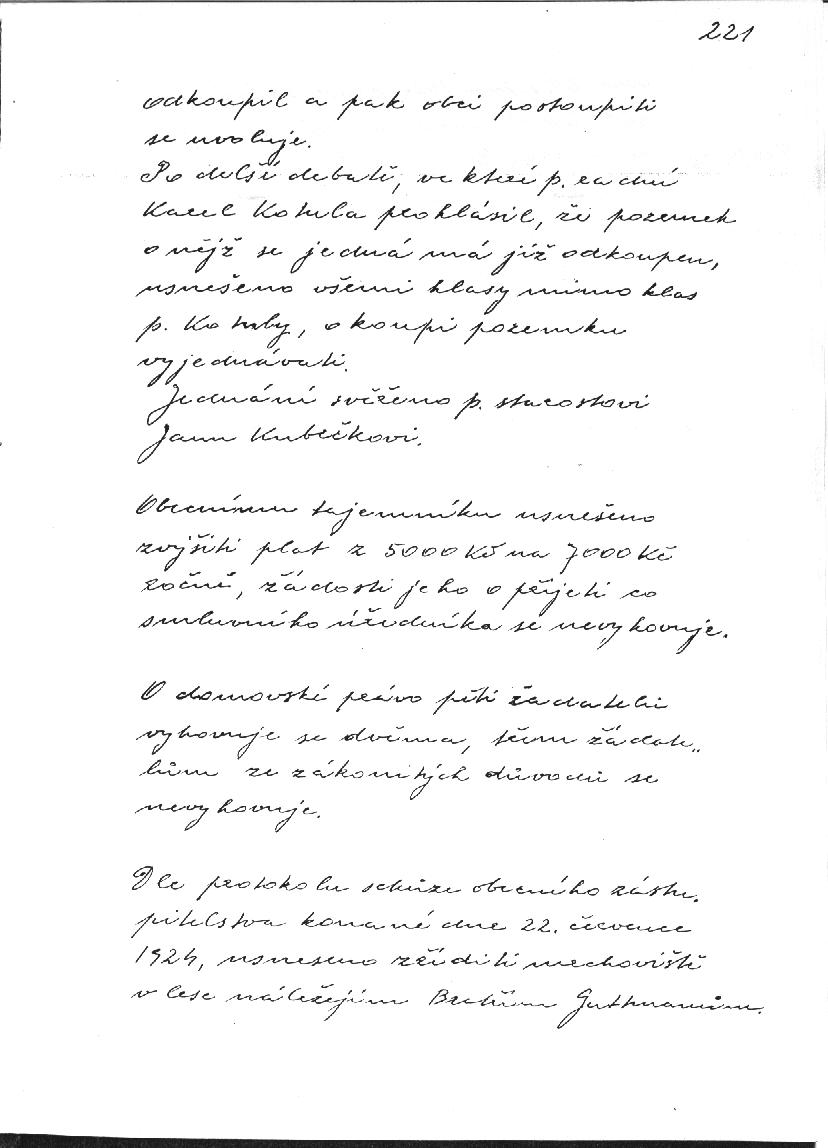 221
odkoupil a pak obci postoupiti
se uvoluje.
Po delší debatě, ve které p. radní
Karel Kotula prohlásil, že pozemek
o nějž se jedná má již odkoupen,
usnešeno všemi hlasy mimo hlas
p. Kotuly, o koupi pozemku
vyjednávati.
Jednání svěřeno p. starostovi
Janu Kubečkovi.
Obecnímu tajemníku usnešeno
zvýšiti plat z 5000 Kč na 7000 Kč
ročně, žádosti jeho o přijetí co
smluvního úředníka se nevyhovuje.
O domovské právo pěti žadatelů
vyhovuje se dvěma, třem žádate„
lům ze zákonitých důvodů se
nevyhovuje.
Dle protokolu schůze obecního zastu„
pitelstva konané dne 22. července
1924, usneseno zříditi mechoviště
v lese náležejícím Bratřím Guthmanům.